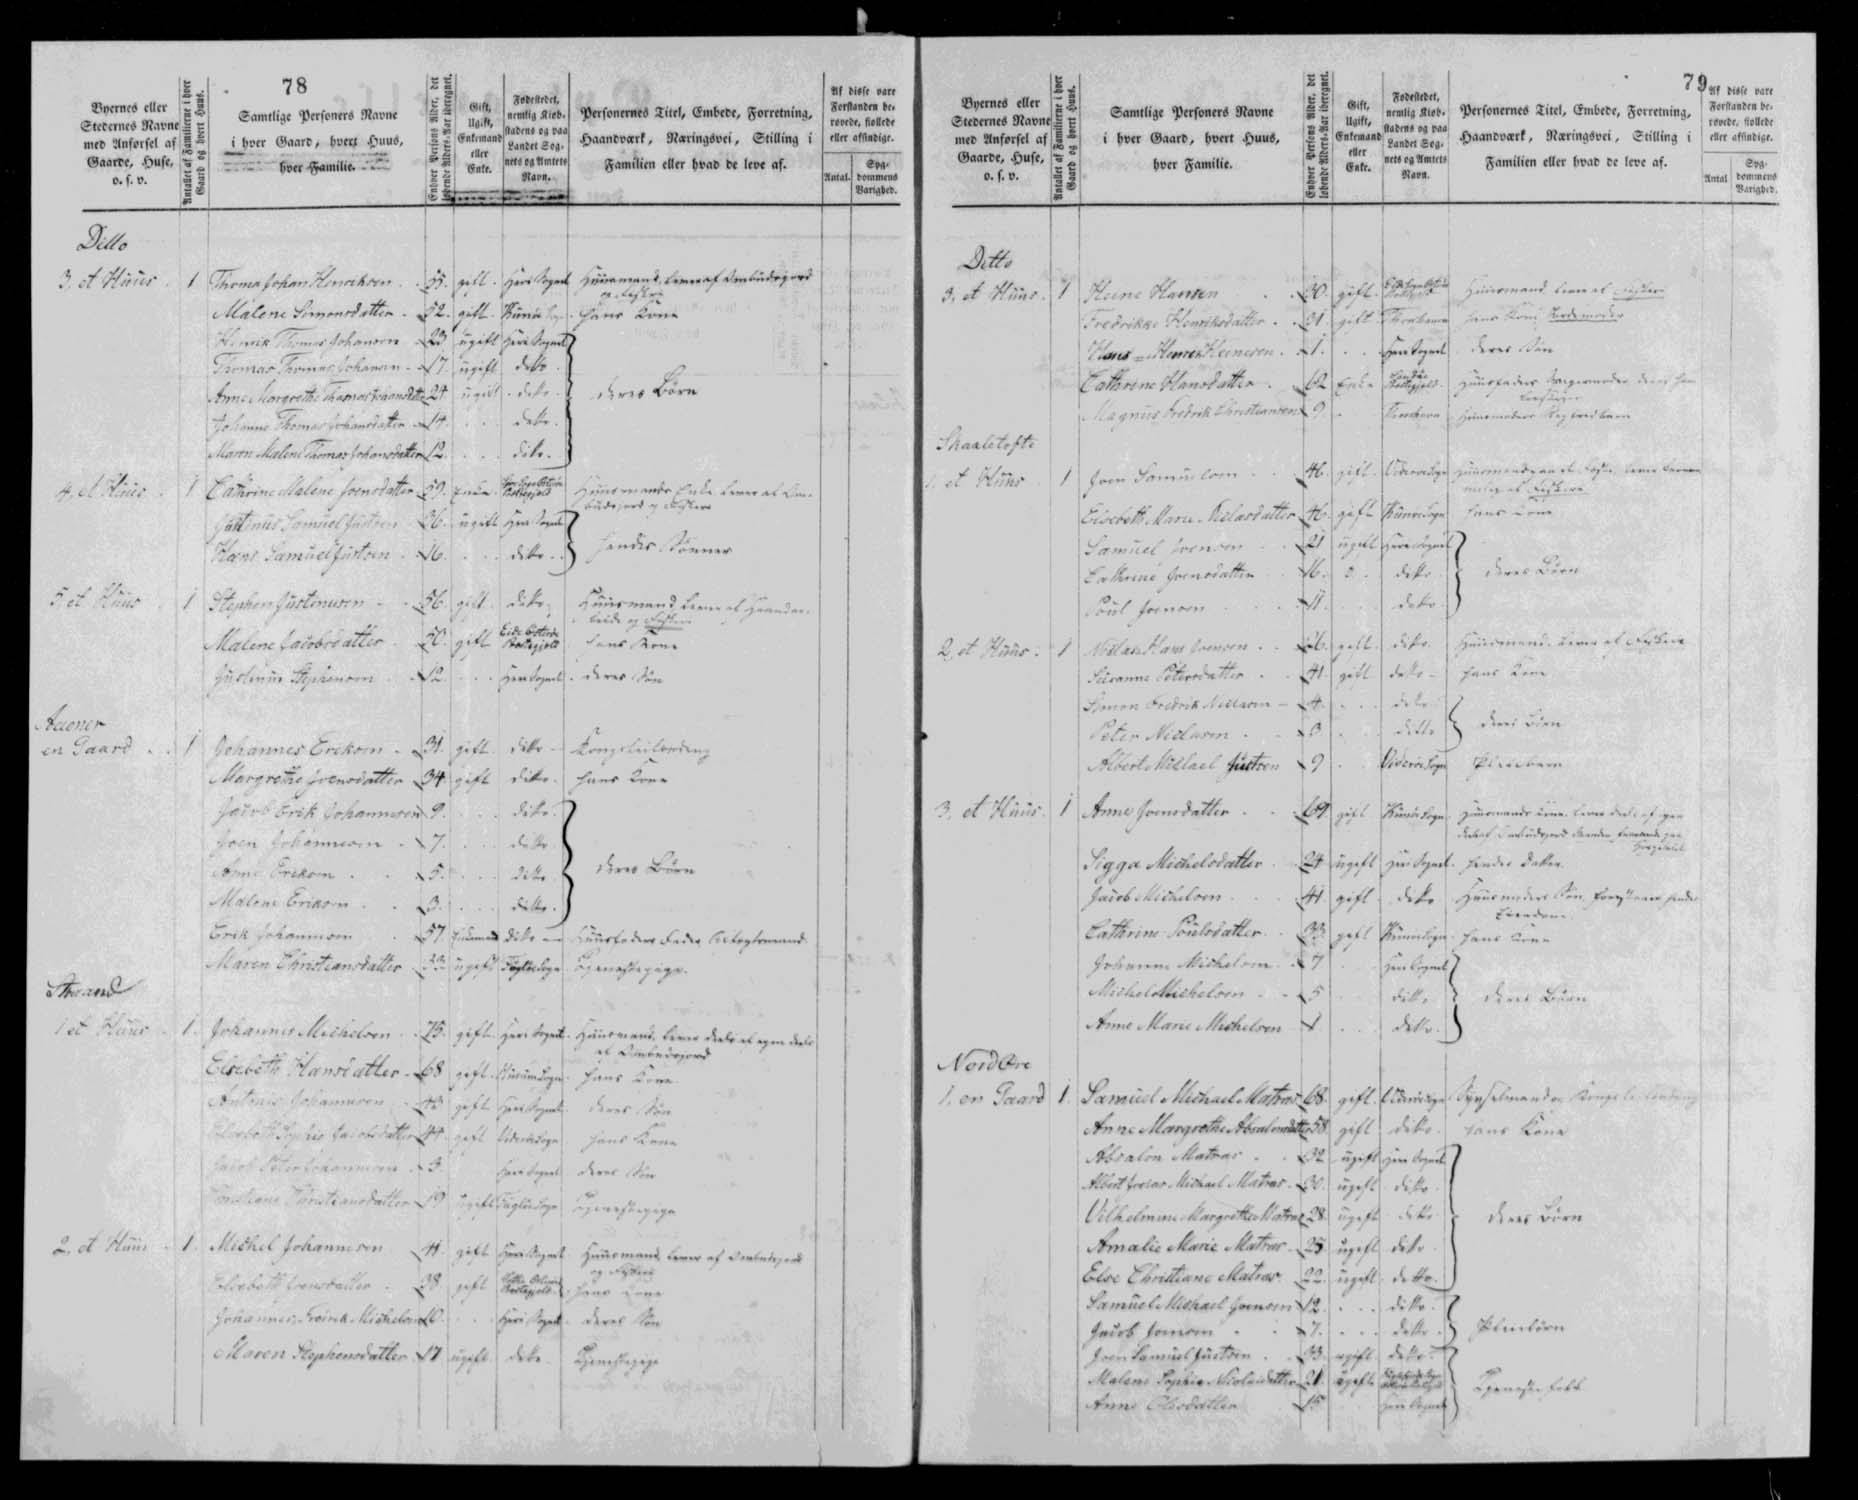 78
Byernes eller Stedernes Navne med Anførsel af Gaarde, Huse, o. s. v.
Antallet af Familierne i hver Gaard og hvert Huus.
Samtlige Personers Navne i hver Gaard, hvert Huus, hver Familie.
Enhver Persons Alder, det løbende Alders-Aar iberegnet.
Gift, Ugift, Enkemand eller Enke.
Fødestedet, nemlig Kiøbstadens og paa Landet Sognets og Amtets Navn.
Personernes Titel, Embede, Forretning, Haandværk, Næringsvei, Stilling i Familien eller hvad de leve af.
Af disse vare Forstanden berøvede, fiollede eller affindige.
Antal.
Sygdommens Varighed.
Ditto
3, et Huus 1 Thomas Johan Henriksen 55. gift. Heri Sognet Huusmand, lever af Ombudsjord og Fiskeri
Malene Simonsdatter 52. gift. Kunøe Sogn hans Kone
Henrik Thomas Johansen 23 ugift Heri Sognet
Thomas Thomas Johansen 17. ugift ditto
Anne Margrethe Thomas Johansdatter 24 ugift ditto deres Børn
Johanne Thomas Johansdatter 14 ditto
Maren Malene Thomas Johansdatter 12. ditto
4, et Huus 1 Cathrine Malene Joensdatter 59. Enke Huusmands Enke, lever af Ombudsjord og Fiskeri
Justinus Samuel Justsen 36. ugift Heri Sognet
Hans Samuel Justsen 16. ditto hendes Sønner
5, et Huus 1 Stephen Justinusen 56. gift. ditto Huusmand, lever af Haandarbeide og Fiskeri
Malene Jacobsdatter 50. gift Eide Østerøe Præstegjeld hans Kone
Justinus Stephensen 12. Heri Sognet deres Søn
en Gaard 1 Johannes Eriksen 31. gift. ditto Kongsleilænding
Margrethe Joensdatter 34 gift ditto hans Kone
Jacob Erik Johannesen 9. ditto
Joen Johannesen 7. ditto
Anne Eriksen 5. ditto deres Børn
Malene Eriksen 3. ditto
Erik Johannesen 57. Enkemand ditto Huusfaders Fader, Aftægtsmand
Maren Christiansdatter ugift Fugløe Sogn Tjenestepige
Strand
1 et Huus 1. Johannes Michelsen 75. gift. Heri Sognet Huusmand, lever deels af egen deels af Ombudsjord
Elsebeth Hansdatter 68 gift. hans Kone
Antonis Johannesen 43 gift Heri Sognet deres Søn
Elsebeth Sophie Jacobsdatter 44. gift Viderøe Sogn hans Kone
Jacob Peter Johannesen 3. Heri Sognet deres Søn
Christiane Christiansdatter 19 ugift Fugløe Sogn Tjenestepige
2, et Huus 1. Michel Johannesen 41. gift Heri Sognet Huusmand, lever af Ombudsjord og Fiskeri
Elsebeth Joensdatter 38. gift hans Kone
Johannes Fredrik Michelsen 10. Heri Sognet deres Søn
Maren Stephensdatter 17 ugift. ditto Tjenestepige
79
Byernes eller Stedernes Navne med Anførsel af Gaarde, Huse, o. s. v.
Antallet af Familierne i hver Gaard og hvert Huus.
Samtlige Personers Navne i hver Gaard, hvert Huus, hver Familie.
Enhver Persons Alder, det løbende Alders-Aar iberegnet.
Gift, Ugift, Enkemand eller Enke.
Fødestedet, nemlig Kiøbstadens og paa Landet Sognets og Amtets Navn.
Personernes Titel, Embede, Forretning, Haandværk, Næringsvei, Stilling i Familien eller hvad de leve af.
Af disse vare Forstanden berøvede, fiollede eller affindige.
Antal
Sygdommens Varighed.
Ditto
3, et Huus. 1 Heine Hansen 30. gift Huusmand lever af Fiskeri
Fredrikke Henriksdatter 31. gift Thorshavn hans Kone, Jordemoder
Hans Henrik Heinesen 1. Heri Sognet deres Søn
Cathrine Hansdatter 62 Enke
Magnus Fredrik Christiansen 9 Thorshavn
Skaaletofte
1, et Huus 1 Joen Samuelsen 46. gift. Viderøe Sogn
Elsebeth Marie Niclasdatter 46. gift Kunøe Sogn hans Kone
Samuel Joensen 21 ugift Heri Sognet
Cathrine Joensdatter 16. ditto deres Børn
Poul Joensen 11 ditto
2, et Huus 1 Niclas Hans Joensen 46. gift. ditto. Huusmand, lever af Fiskeri
Susanne Petersdatter 41. gift ditto hans Kone
Simon Fredrik Niclasen 4. ditto
Peter Niclasen 3 ditto deres Børn
Albert Michael Justsen 9 Viderøe Sogn Pleiebarn
3, et Huus. 1 Anne Joensdatter 69. gift Kunøe Sogn
Sigga Michelsdatter 24 ugift Heri Sognet hendes Datter
Jacob Michelsen 41 gift. ditto
Cathrine Poulsdatter 33. gift Kunøe Sogn hans Kone
Johanne Michelsen 7 Heri Sognet
Michel Michelsen 5 ditto deres Børn
Anne Marie Michelsen 1 ditto
Nord Øre
1. en Gaard 1. Samuel Michael Matras 68. gift. Viderøe Sogn Sysselmand og Kongsleilænding
Anne Margrethe Absalonsdatter 58 gift ditto. hans Kone
Absalon Matras 32 ugift Heri Sognet
Albert Michael Matras 30. ugift ditto.
Vilhelmine Margrethe Matras 28. ugift ditto deres Børn
Amalie Marie Matras 25 ugift ditto
Else Christiane Matras 22. ugift ditto.
Samuel Michael Joensen 12 ditto.
Jacob Joensen 7. ditto Pleiebørn
Joen Samuel Justsen 33. ugift ditto.
Malene Sophie Nicolaidatter 21 ugift Tjenestefolk
Anne Olesdatter 15 Heri Sognet